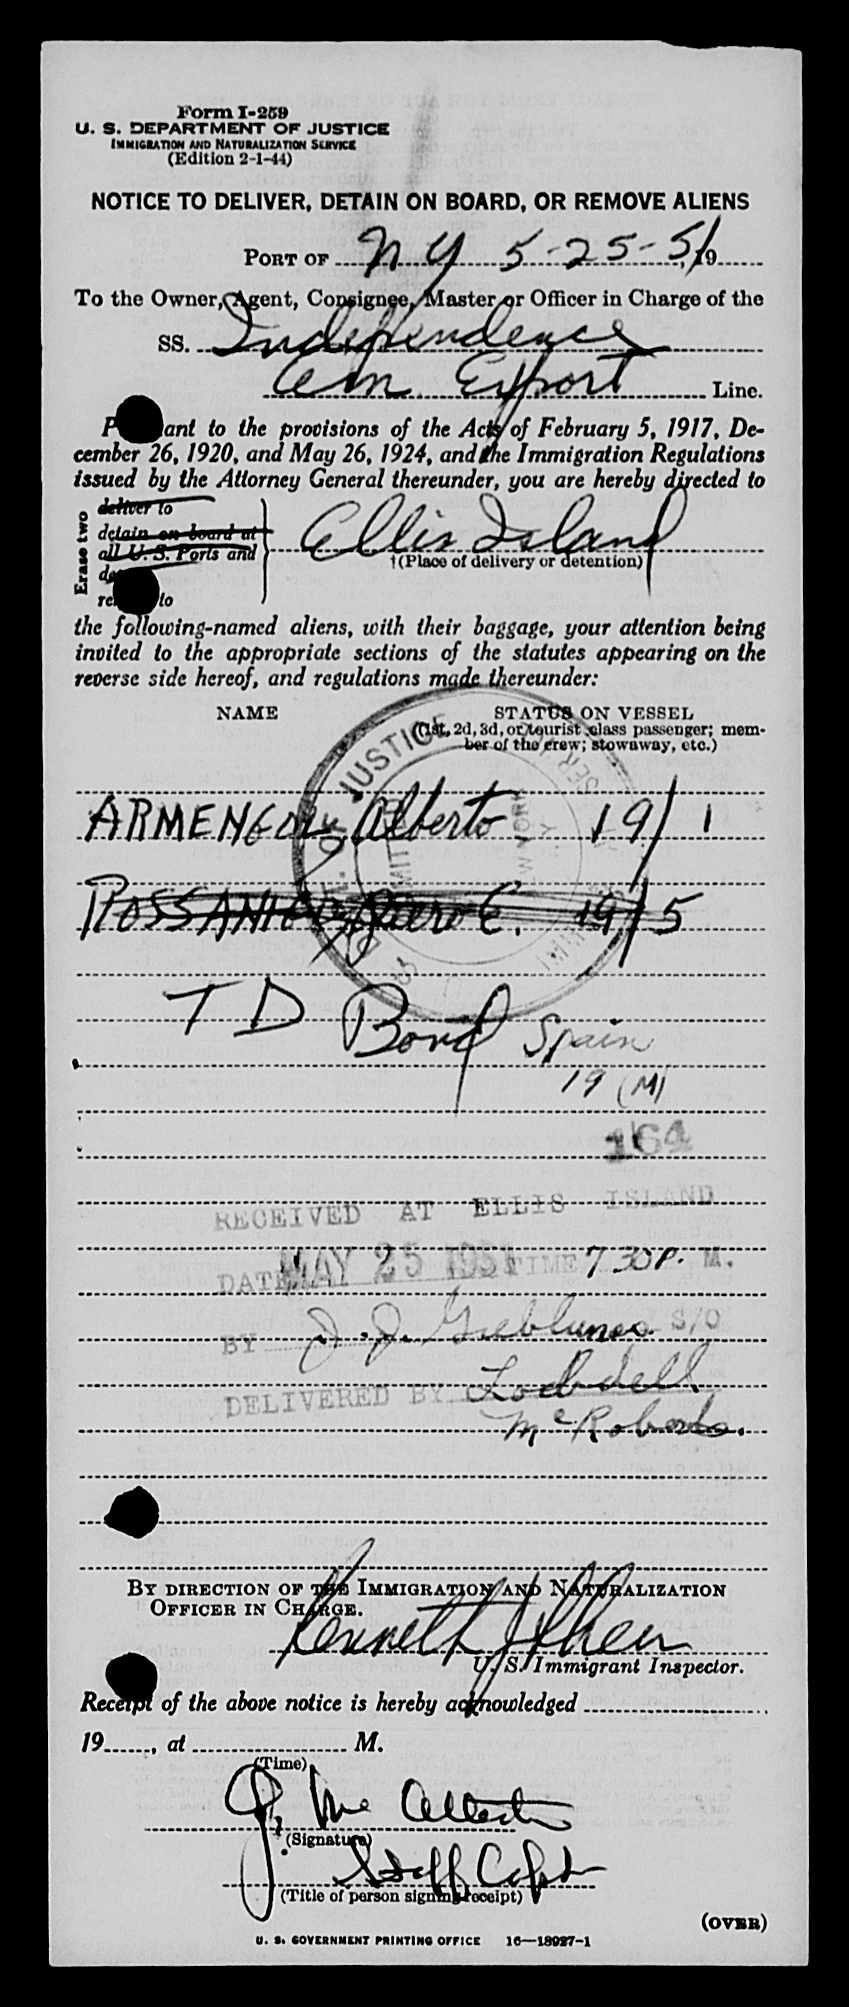 Form I-259
U. S. DEPARTMENT OF JUSTICE
IMMIGRATION AND NATURALIZATION SERVICE
(Edition 2-1-44)
NOTICE TO DELIVER, DETAIN ON BOARD, OR REMOVE ALIENS
PORT OF N Y 5-25-51, 19
To the Owner, Agent, Consignee, Master or Officer in Charge of the
SS. Independence
Am Export Line.
P ant to the provisions of the Acts of February 5, 1917, De-
cember 26, 1920, and May 26, 1924, and the Immigration Regulations
issued by the Attorney General thereunder, you are hereby directed to
Erase two
deliver to
detain on board at
all U. S. Ports and
to
Ellis Island
†(Place of delivery or detention)
the following-named aliens, with their baggage, your attention being
invited to the appropriate sections of the statutes appearing on the
reverse side hereof, and regulations made thereunder:
NAME STATUS ON VESSEL
(1st, 2d, 3d, or tourist class passenger; mem-
ber of the crew; stowaway, etc.)
ARMENGOL, Alberto 19/1
E. 19/5
T D Bond Spain
19 (M)
164
RECEIVED AT ELLIS ISLAND
DATE MAY 25 1951 TIME 7 30 P. M.
BY J. J. S/O
DELIVERED BY Lobdell
McRoberts.
BY DIRECTION OF THE IMMIGRATION AND NATURALIZATION
OFFICER IN CHARGE.
Kenneth J Shea
U. S. Immigrant Inspector.
Receipt of the above notice is hereby acknowledged
19 , at M.
(Time)
J. Mc
(Signature)
Staff Capt
(Title of person signing receipt)
(OVER)
U. S. GOVERNMENT PRINTING OFFICE 16—18927-1